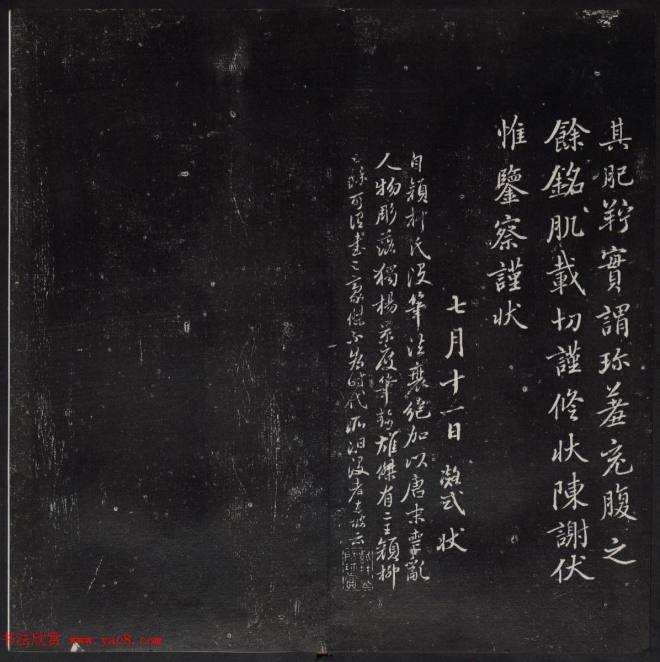 其肥羜實謂珎羞充腹之
餘銘肌載切謹脩狀陳謝伏
惟鑒察謹狀
七月十一日 凝式狀
自顏柳氏沒筆法衰絕加以唐末喪亂
人物彫落獨楊景度筆迹雄傑有二王顏柳
之餘可謂書之豪傑不為時代所汩沒者東坡云
书法欣赏 www.yac8.com